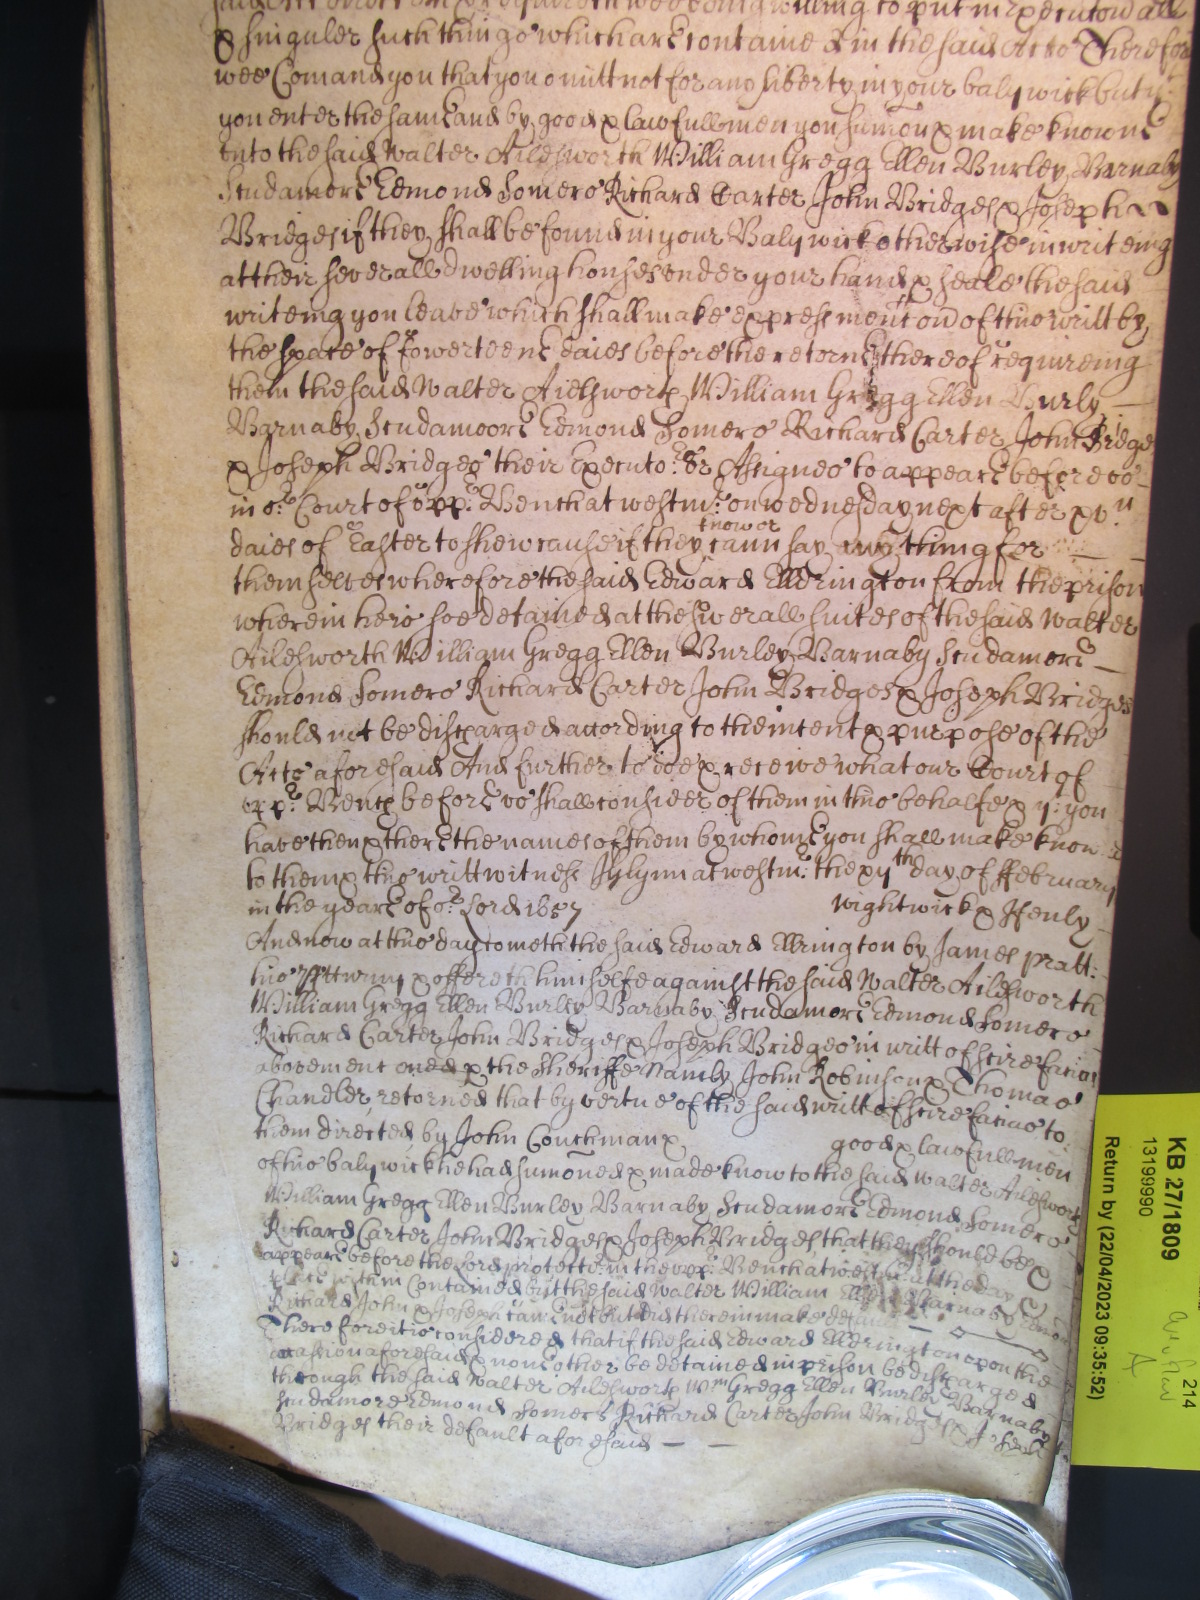 willing to put in execucon all
& singuler such things which are contained in the said Acts Therefore
wee Comand you that you omitt not for any liberty in your balywick but
you enter the same and by good & lawfull men you sumon & make knowne
unto the said Walter Aildsworth William Gregg Ellen Burley Barnaby
Scudamore Edmond Somers Richard Carter John Bridges & Joseph
Bridges if they shall be found in your Balywick otherwise in writeing
at their severall dwelling houses under your hand & seale the said
writeing you leave which shall make expresse mention of this writt by
the space of fowerteene daies before the retorne thereof requireing
them the said Walter Aildsworth William Gregg Ellen Burly
Barnaby Scudamoore Edmond Somers Richard Carter John Bridge
& Joseph Bridges their Executors or Assignes to appeare before us
in or Court of upp: Bench at westmr: on wednesday next after xvn
daies of Easter to shew cause if they know or cann say any thing for
themselves wherefore the said Edward Elldrington from the prison
wherein hee is soe detained at the severall suites of the said Walter
Aildsworth William Gregg Ellen Burley Barnaby Scudamore
Edmond Somers Richard Carter John Bridges & Joseph Bridges
should not be discharged according to the intent & purpose of the
Acts aforesaid And further to doe & receive what our Court of
upp: Bench before us shall consider of them in this behalfe & yt you
have then & there the names of them by whome you shall make know
to them & this writt witnesse J Glynn at westmr: the xijth day of ffebruary
in the yeare of or: Lord 1657 Wightwick & Henly
And now at this day cometh the said Edward Ellrington by James Pratt:
his Atturny & offereth himselfe against the said Walter Aildsworth
William Gregg Ellen Burley Barnaby Scudamore Edmond Somers
Richard Carter John Bridges & Joseph Bridges in writt of scire facias
abovementoned & the Sheriffe Namly John Robinson & Thomas
Chandler retorned that by vertue of the said writt of scire facias to
them directed by John Couchman & good & lawfull men
of his balywick he had sumoned & made know to the said walter Aildsworth
William Gregg Ellen Burley Barnaby Scudamore Edmond Somers
Richard Carter John Bridges & Joseph Bridges that they should be &
appeare before the Lord protector in the upp: Bench at westmr: at the day &
place within Contained but the said Walter William Ellen Barnaby Edmond
Richard John & Joseph came not but did therein make default
Therefore it is considered that if the said Edward Elldrington upon the
occasion aforesaid & none other be detained in prison be discharged
through the said Walter Aildsworth Wm Gregg Ellen Burley Barnaby
Scudamore Edmond Somers Richard Carter John Bridges & Joseph
Bridges their default aforesaid
KB 27/1809
13199990
214
Return by (22/04/2023 09:35:52)